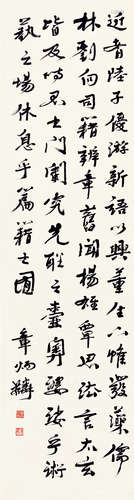 近者陸子優游新語以興董生下帷發藻儒
林劉向司籍辨章舊聞楊雄覃思法言太玄
皆及時君之門闈究先聖之壼奧婆娑乎術
藝之場休息乎篇籍之囿
章炳麟